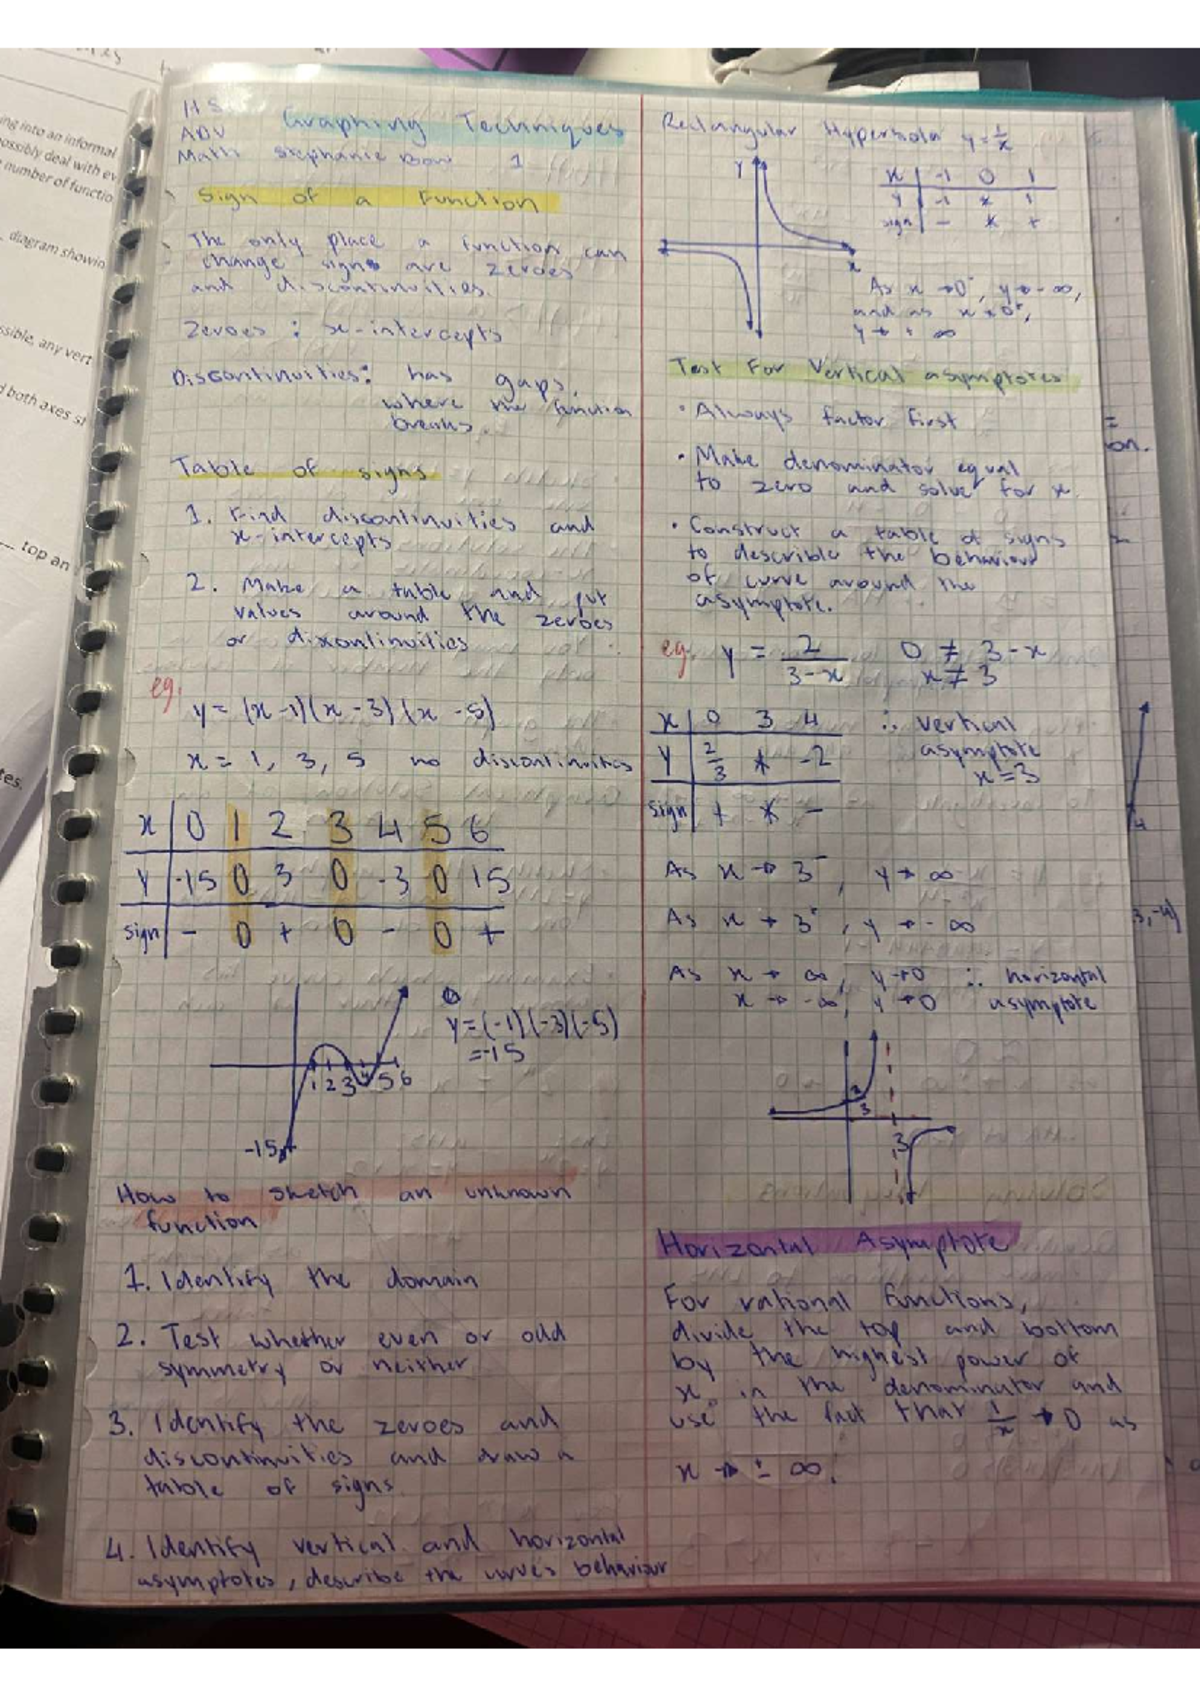 HS
ADV Graphing Techniques
Math Stephanie 1
Sign of a Function
The only place a function can
change signs are zeroes
and discontinuities.
Zeroes : x-intercepts
Discontinuities: has gaps,
where the function
breaks.
Table of signs
1. Find discontinuities and
x-intercepts
2. Make a table and put
values around the zeroes
or discontinuities
eg.
y = (x-1)(x-3)(x-5)
x = 1, 3, 5 no discontinuities
x 0 1 2 3 4 5 6
y -15 0 3 0 -3 0 15
sign - 0 + 0 - 0 +
y=(-1)(-3)(-5)
=-15
1 2 3 4 5 6
-15
How to sketch an unknown
function
1. Identify the domain
2. Test whether even or odd
symmetry or neither
3. Identify the zeroes and
discontinuities and draw a
table of signs.
4. Identify vertical and horizontal
asymptotes, describe the curves behaviour
Rectangular Hyperbola y = 1/x
y
x
x -1 0 1
y -1 * 1
sign - * +
As x → 0⁻, y → -∞,
and as x → 0⁺,
y → + ∞
Test For Vertical asymptotes
• Always factor first
• Make denominator equal
to zero and solve for x.
• Construct a table of signs
to describle the behaviour
of curve around the
asymptote.
eg. y = 2/(3-x) 0 ≠ 3-x
x ≠ 3
x 0 3 4 ∴ vertical
y 2/3 * -2 asymptote
x=3
sign + * -
As x → 3⁻, y → ∞
As x → 3⁺, y → -∞
As x → ∞, y → 0 ∴ horizontal
x → -∞, y → 0 asymptote
2/3
3
Horizontal Asymptote
For rational functions,
divide the top and bottom
by the highest power of
x in the denominator and
use the fact that 1/x → 0 as
x → ± ∞.
ing into an informal
possibly deal with ev
number of functio
diagram showin
ssible, any vert
d both axes s
top an
tes.
on.
4
3,-4)